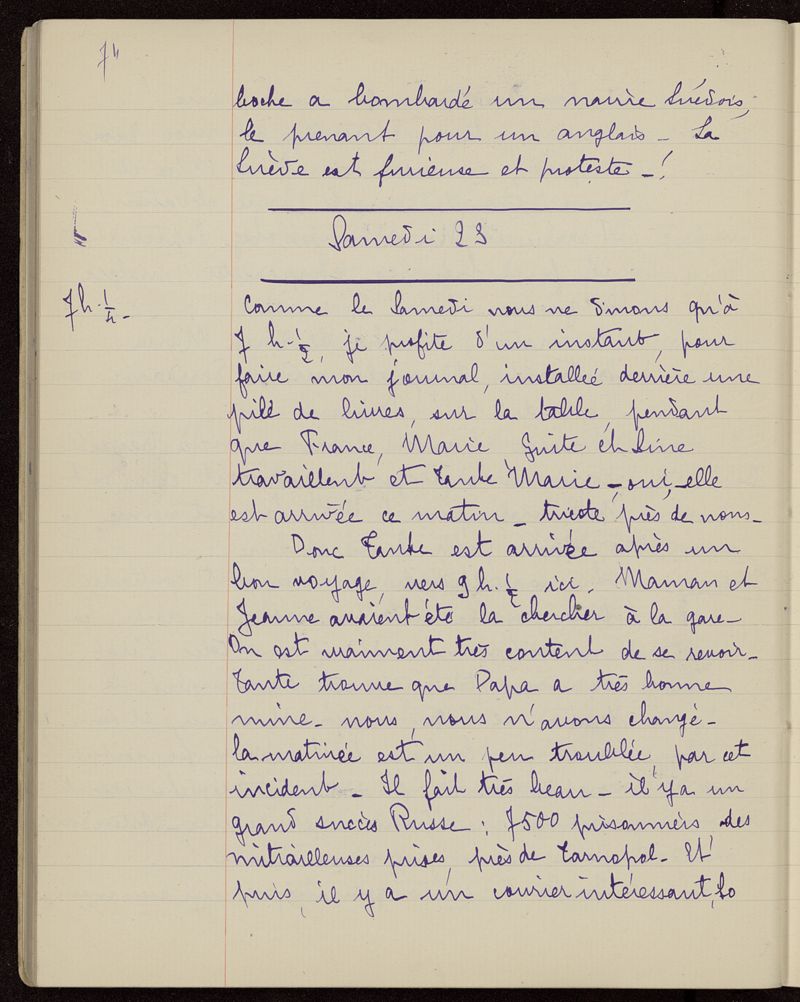 74
boche a bombardé un navire Suédois,
le prenant pour un anglais - La
Suède est furieuse et proteste - !
Samedi 23
7h.¼ -
Comme le Samedi nous ne dînons qu'à
7 h.½, je profite d'un instant, pour
faire mon journal, installée derrière une
pile de livres, sur la table, pendant
que France, Marie, Guite et Line
travaillent et Tante Marie - oui, elle
est arrivée ce matin - tricote près de nous -
Donc Tante est arrivée après un
bon voyage, vers 9 h.½ ici. Maman et
Jeanne avaient été la chercher à la gare -
On est vraiment très content de se revoir -
Tante trouve que Papa a très bonne
mine - nous, nous n'avons changé -
la matinée est un peu troublée par cet
incident - Il fait très beau - il y a un
grand succès Russe : 7500 prisonniers, des
mitrailleuses prises, près de Tarnopol - Et
puis, il y a un courier intéressant,